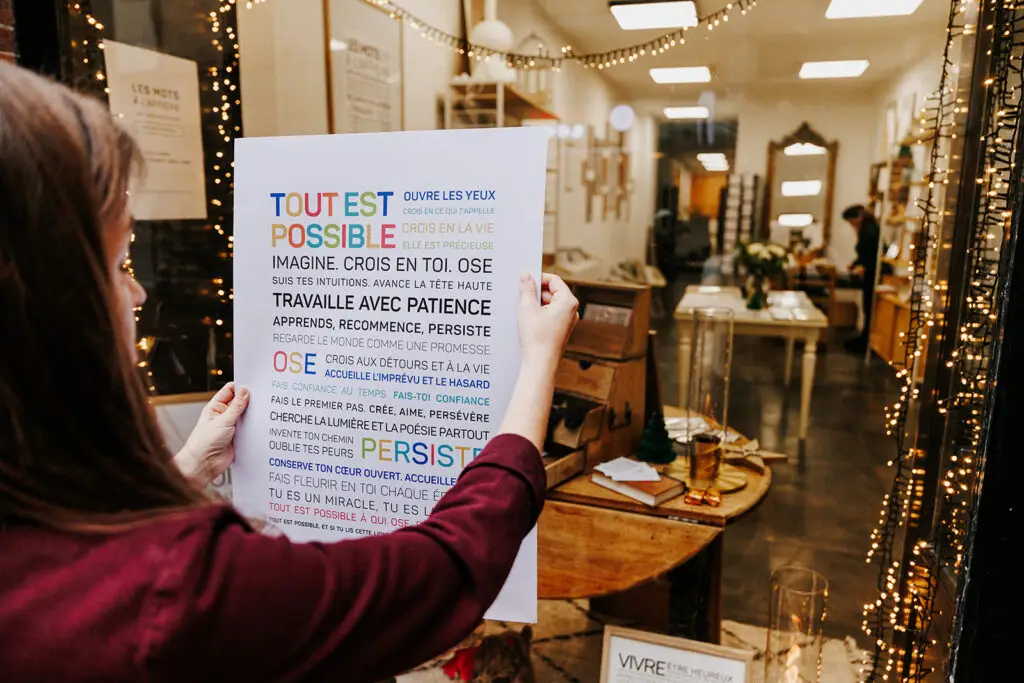 LES MOTS
À L'AFFICHE
LES MOTS
TOUT EST
POSSIBLE
OUVRE LES YEUX
CROIS EN CE QUI T'APPELLE
CROIS EN LA VIE
ELLE EST PRÉCIEUSE
IMAGINE. CROIS EN TOI. OSE
SUIS TES INTUITIONS. AVANCE LA TÊTE HAUTE
TRAVAILLE AVEC PATIENCE
APPRENDS, RECOMMENCE, PERSISTE
REGARDE LE MONDE COMME UNE PROMESSE
OSE
CROIS AUX DÉTOURS ET À LA VIE
ACCUEILLE L'IMPRÉVU ET LE HASARD
FAIS CONFIANCE AU TEMPS. FAIS-TOI CONFIANCE
FAIS LE PREMIER PAS. CRÉE, AIME, PERSÉVÈRE
CHERCHE LA LUMIÈRE ET LA POÉSIE PARTOUT
INVENTE TON CHEMIN
OUBLIE TES PEURS
PERSISTE
CONSERVE TON CŒUR OUVERT. ACCUEILLE
FAIS FLEURIR EN TOI CHAQUE
TU ES UN MIRACLE, TU
TOUT EST POSSIBLE À QUI OSE,
TOUT EST POSSIBLE, ET SI TU LIS CETTE
VIVRE ÊTRE HEUREUX